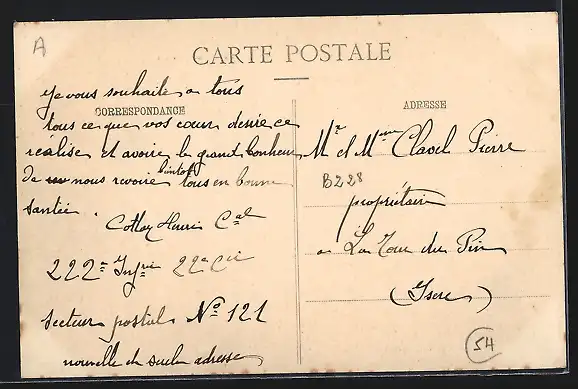 A
CARTE POSTALE
CORRESPONDANCE
ADRESSE
Je vous souhaite a tous
tous ce que vos cœur desire ce
réalise et avoir le grand bonheur
de nous revoire bientot tous en bonne
santée.
Henri Cal
222e Infrie 22e Cie
Secteur postal No 121
nouvelle adresse
Mr et Mme Clavel Pierre
B228
propriétaire
a La Tour du Pin
(Isere)
54